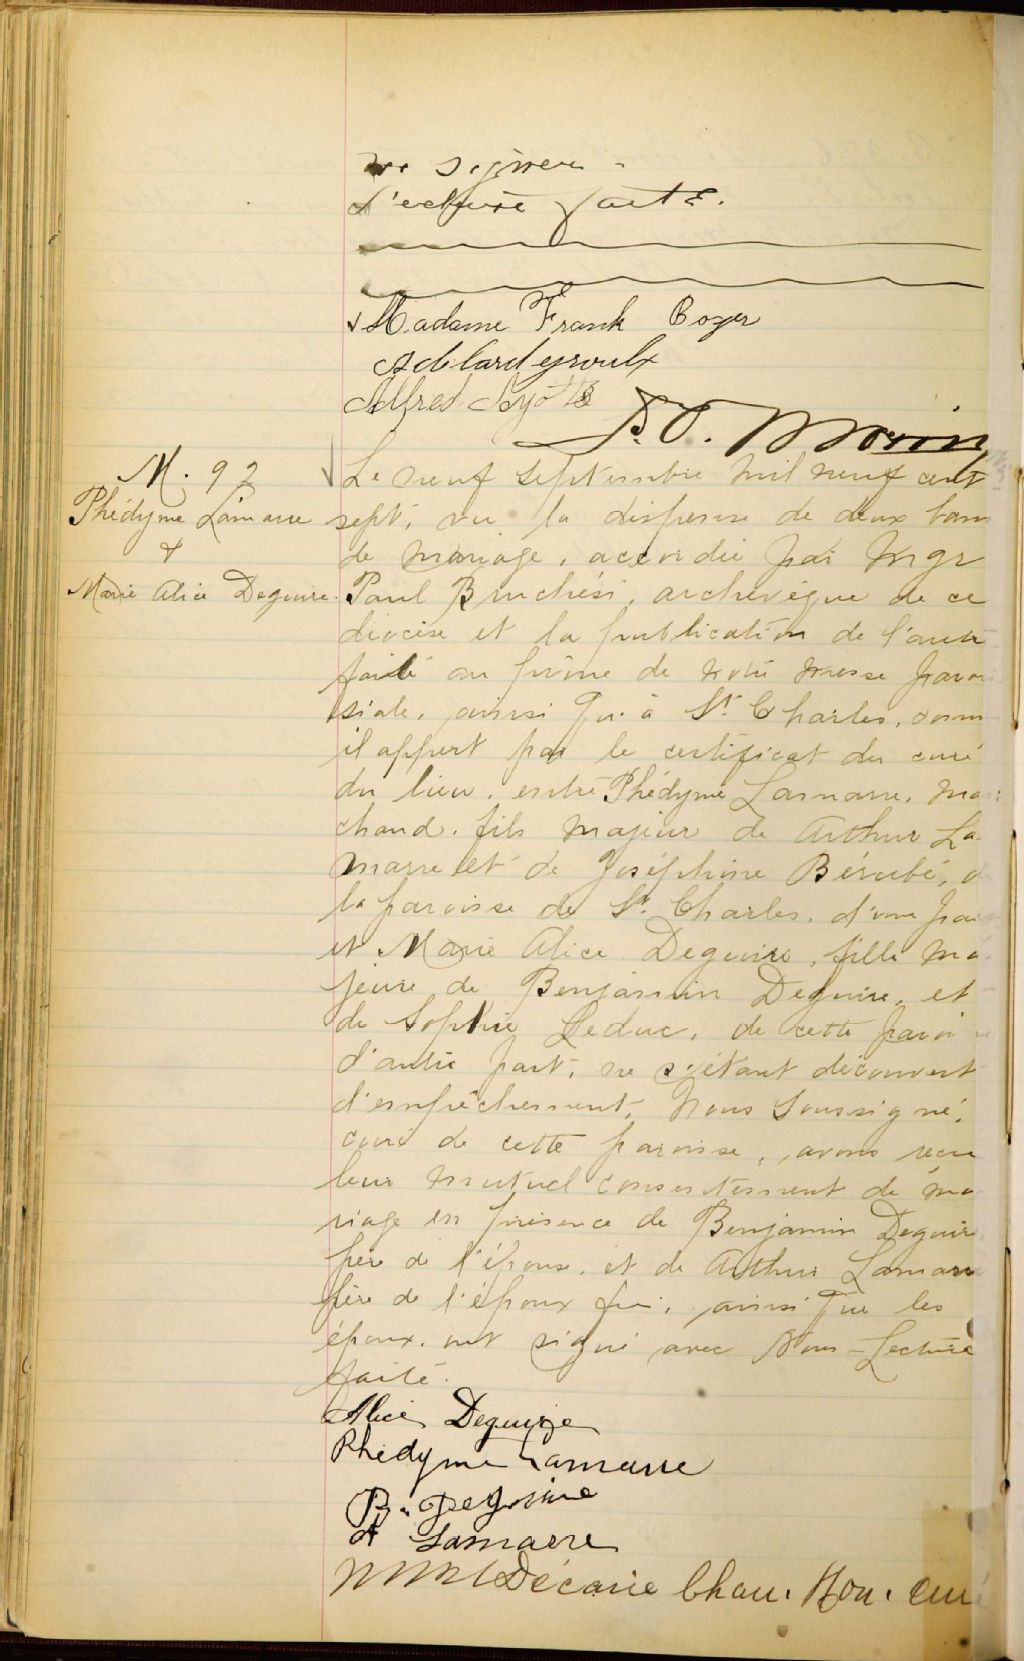 signer -
Lecture faite.
Madame Frank Boyer
Adelard groulx
Alfred
Morin
M. 92
Phédyme Lamarre
&
Marie Alice Deguire.
Le neuf septembre mil neuf cent
sept, vu la dispense de deux bans
de mariage, accordée par Mgr
Paul Bruchési, archevêque de ce
diocèse et la publication de l'autre
faite au prône de notre messe parois
siale, ainsi qu'à St. Charles, comm
il appert par le certificat du curé
du lieu, entre Phédyme Lamarre, mar
chand, fils majeur de Arthur La-
marre et de Joséphine Bérubé, d
la paroisse de St. Charles, d'une part
et Marie Alice Deguire, fille ma-
jeure de Benjamin Deguire, et
de Sophie Leduc, de cette paroi
d'autre part, ne s'étant découvert
d'empêchement, Nous soussigné,
curé de cette paroisse, avons reçu
leur mutuel consentement de ma
riage en présence de Benjamin Deguire
père de l'épouse, et de Arthur Lamarre
père de l'époux qui, ainsi que les
époux, ont signé avec Nous - Lecture
faite.
Alice Deguire
Phedyme Lamarre
B. Deguire
A Lamarre
Décarie Chan. Hon. curé